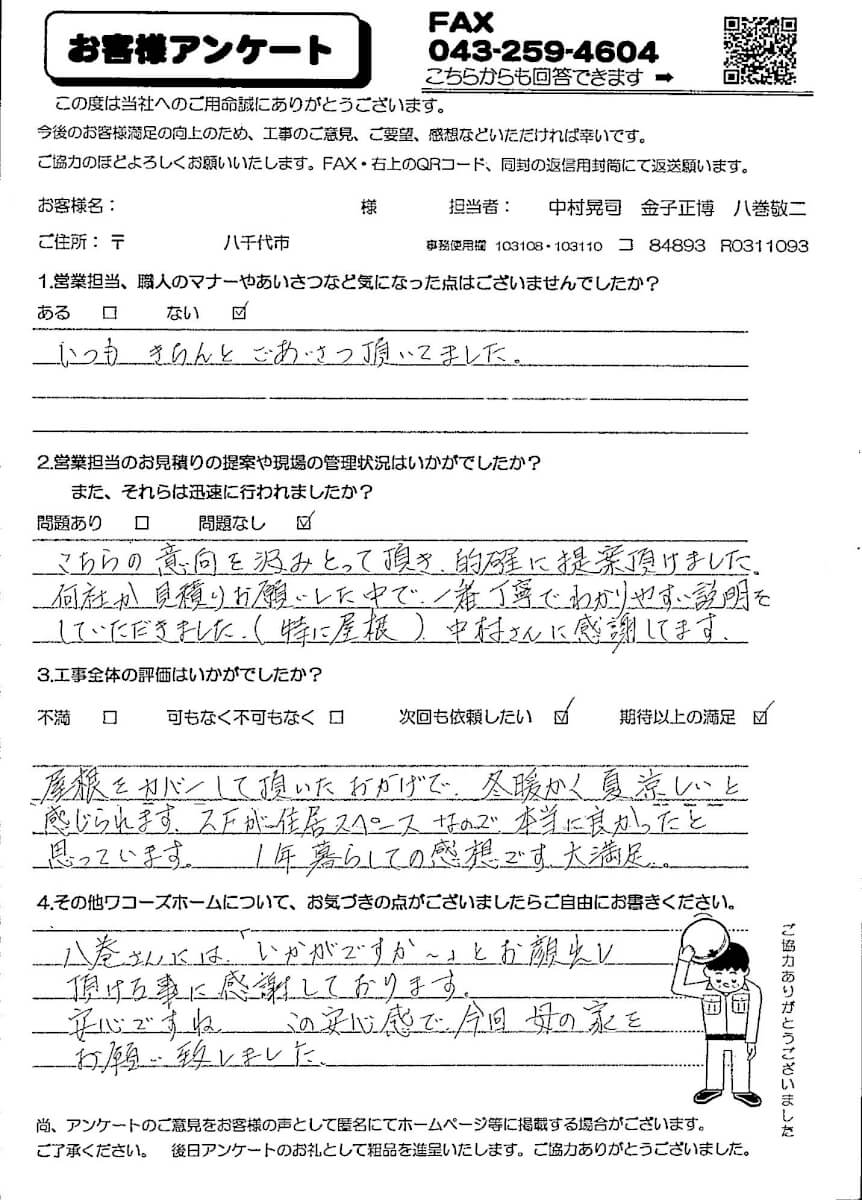 お客様アンケート
FAX
043-259-4604
こちらからも回答できます ➡
この度は当社へのご用命誠にありがとうございます。
今後のお客様満足の向上のため、工事のご意見、ご要望、感想などいただければ幸いです。
ご協力のほどよろしくお願いいたします。FAX・右上のQRコード、同封の返信用封筒にて返送願います。
お客様名： 様 担当者： 中村晃司 金子正博 八巻敬二
ご住所：〒 八千代市 事務使用欄 103108・103110 コ 84893 R0311093
1.営業担当、職人のマナーやあいさつなど気になった点はございませんでしたか？
ある □ ない ☑
いつも きちんと ごあいさつ頂いてました。
2.営業担当のお見積りの提案や現場の管理状況はいかがでしたか？
また、それらは迅速に行われましたか？
問題あり □ 問題なし ☑
こちらの意向を汲みとって頂き、的確に提案頂けました。
何社か見積りお願いした中で、一番丁寧でわかりやすい説明を
していただきました。(特に屋根) 中村さんに感謝してます。
3.工事全体の評価はいかがでしたか？
不満 □ 可もなく不可もなく □ 次回も依頼したい ☑ 期待以上の満足 ☑
屋根をカバーして頂いたおかげで、冬暖かく夏涼しいと
感じられます。2Fが住居スペースなので、本当に良かったと
思っています。 1年暮らしての感想です。大満足。
4.その他ワコーズホームについて、お気づきの点がございましたらご自由にお書きください。
八巻さんには、「いかがですか～」とお顔出し
頂ける事に感謝しております。
安心ですね。 この安心感で、今回 母の家を
お願い致しました。
ご協力ありがとうございました
尚、アンケートのご意見をお客様の声として匿名にてホームページ等に掲載する場合がございます。
ご了承ください。 後日アンケートのお礼として粗品を進呈いたします。ご協力ありがとうございました。